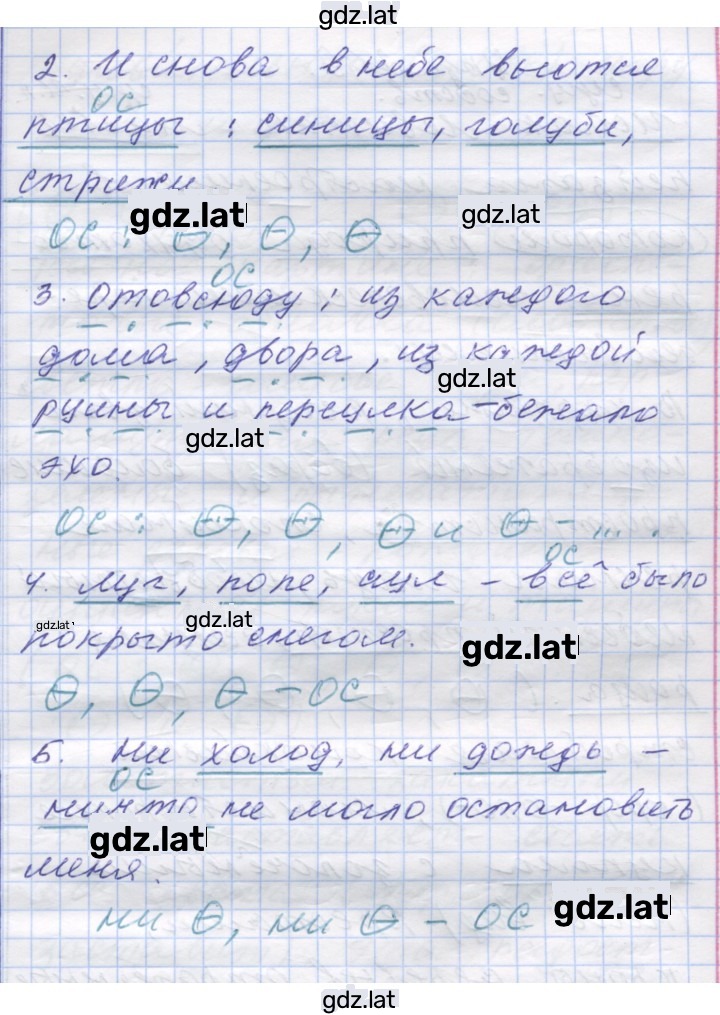 gdz.lat
2. И снова в небе вьются
ОС
птицы : синицы, голуби,
стрижи
gdz.lat gdz.lat
ОС: О, О, О
ОС
3. Отовсюду: из каждого
дома, двора, из каждой
gdz.lat
рцины и переулка - бежало
gdz.lat
эхо.
ОС: О, О, О и О - ... .
ОС
4. Луг, поле, аул - всё было
gdz.lat gdz.lat
покрыто снегом.
gdz.lat
О, О, О - ОС
5. Ни холод, ни дождь -
ОС
ничто не могло остановить
gdz.lat
меня.
gdz.lat
ни О, ни О - ОС
gdz.lat